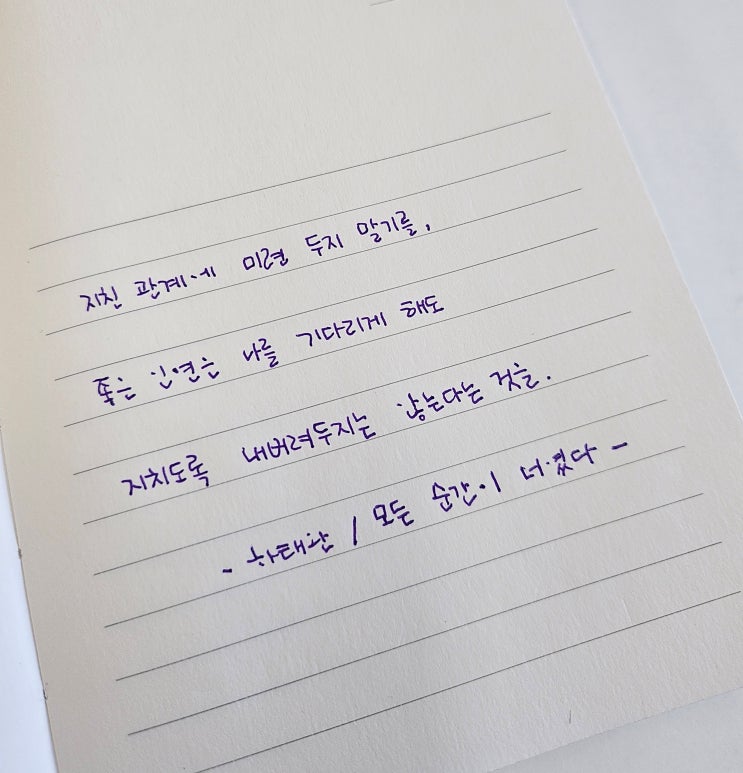 지친 관계에 미련 두지 말기를,
좋은 인연은 나를 기다리게 해도
지치도록 내버려두지는 않는다는 것을.
- 하태완 / 모든 순간이 너였다 -